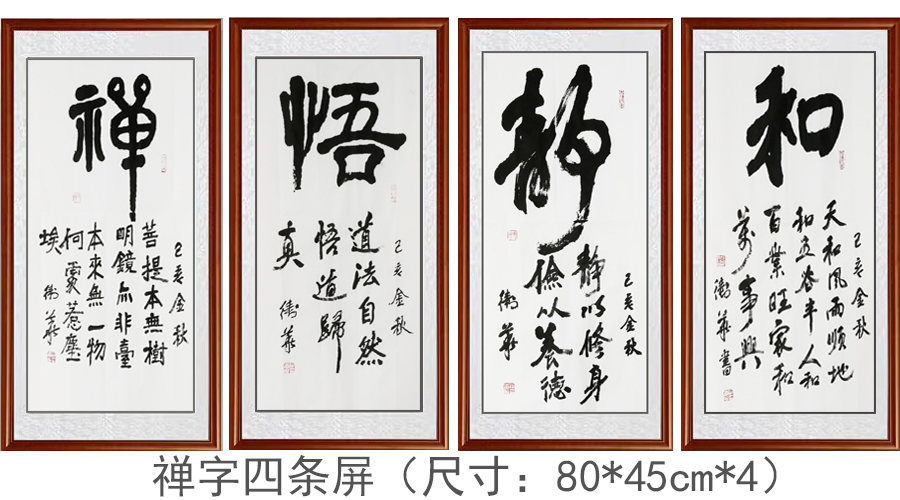 禪
己亥金秋
菩提本無樹
明鏡亦非臺
本來無一物
何處惹塵
埃
衛華
悟
己亥金秋
道法自然
悟道歸
真
衛華
靜
己亥金秋
靜以修身
儉以養德
衛華
和
己亥金秋
天和風雨順地
和五谷丰人和
百業旺家和
萬事興
衛華書
禅字四条屏（尺寸：80*45cm*4）